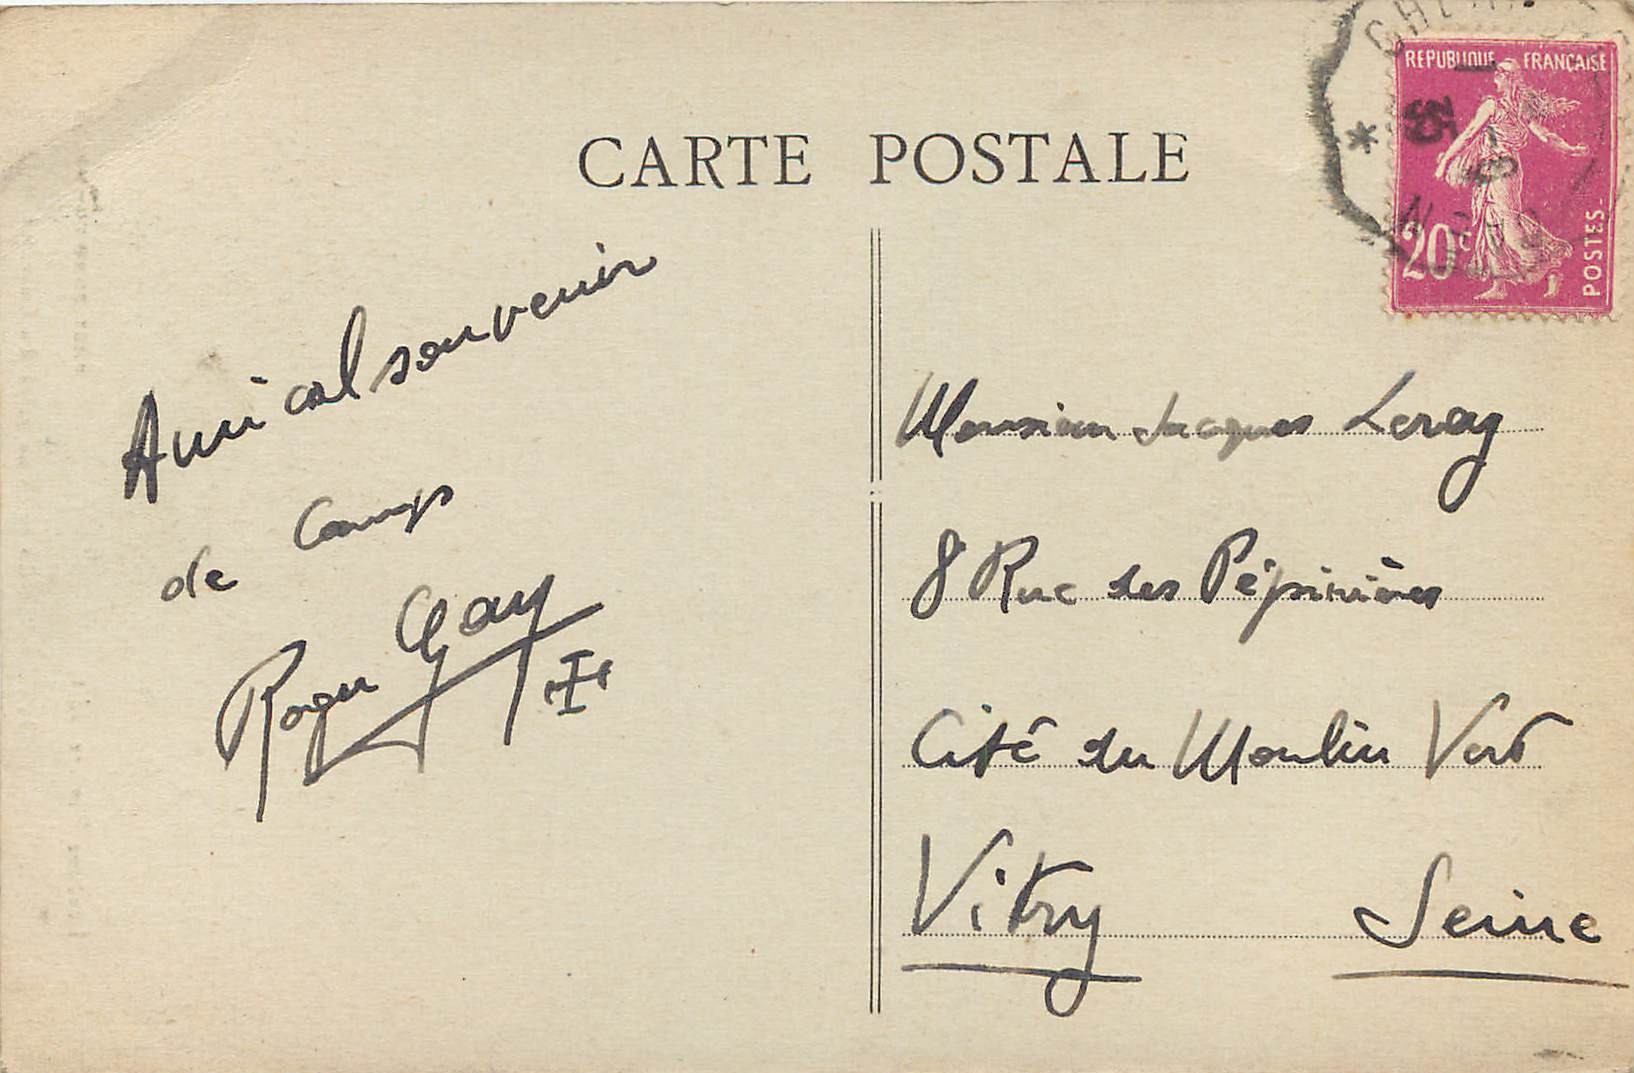 CARTE POSTALE
REPUBLIQUE FRANÇAISE
20c
POSTES
35
Amical souvenir
de Camp
Roger Gay
Monsieur Jacques Leray
8 Rue des Pépinières
Cité du Moulin Vert
Vitry Seine